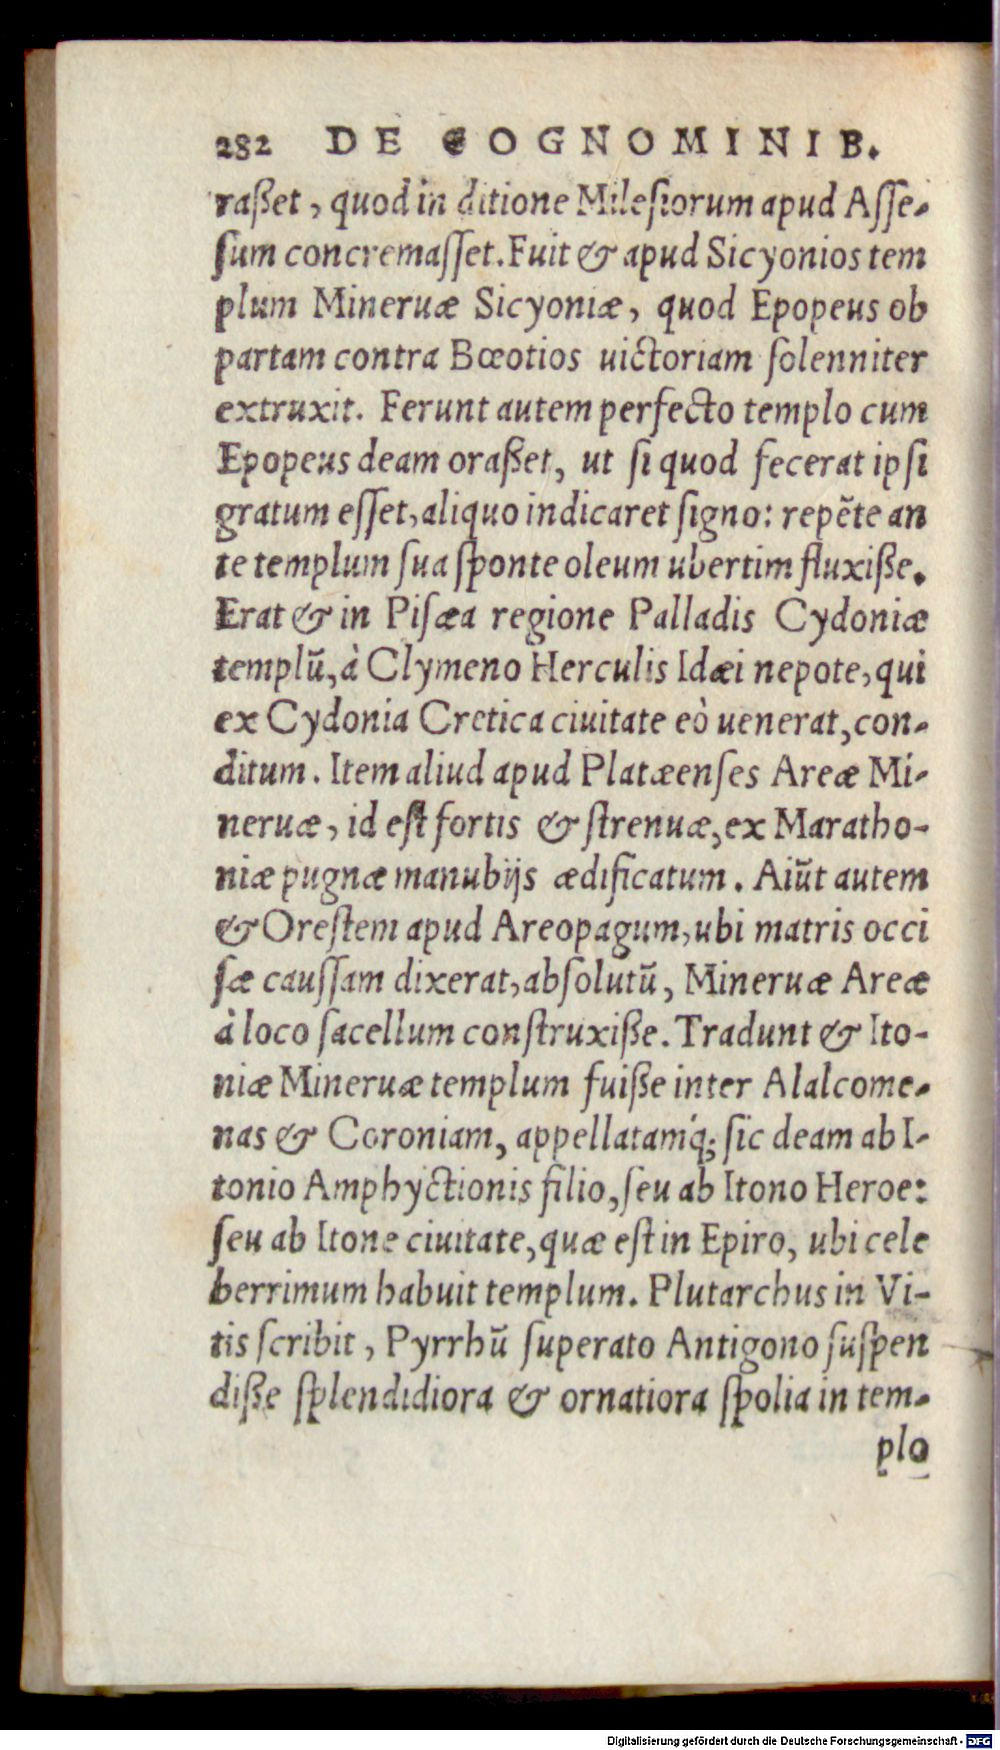 282 DE COGNOMINIB.
raßet, quod in ditione Milesiorum apud Asse-
ſum concremaſſet. Fuit & apud Sicyonios tem
plum Mineruæ Sicyoniæ, quod Epopeus ob
partam contra Bœotios uictoriam ſolenniter
extruxit. Ferunt autem perfecto templo cum
Epopeus deam oraßet, ut ſi quod fecerat ipſi
gratum eſſet, aliquo indicaret ſigno: repẽte an
te templum ſua ſponte oleum ubertim fluxiße.
Erat & in Piſæa regione Palladis Cydoniæ
templũ, à Clymeno Herculis Idæi nepote, qui
ex Cydonia Cretica ciuitate eò uenerat, con-
ditum. Item aliud apud Platæenſes Areæ Mi-
neruæ, id eſt fortis & ſtrenuæ, ex Maratho-
niæ pugnæ manubijs ædificatum. Aiũt autem
& Oreſtem apud Areopagum, ubi matris occi
ſæ cauſſam dixerat, abſolutũ, Mineruæ Areæ
à loco ſacellum conſtruxiße. Tradunt & Ito-
niæ Mineruæ templum fuiße inter Alalcome-
nas & Coroniam, appellatamq́; ſic deam ab I-
tonio Amphyctionis filio, ſeu ab Itono Heroe:
ſeu ab Itone ciuitate, quæ eſt in Epiro, ubi cele
berrimum habuit templum. Plutarchus in Vi-
tis ſcribit, Pyrrhũ ſuperato Antigono ſuſpen
diße ſplendidiora & ornatiora ſpolia in tem-
plo
Digitalisierung gefördert durch die Deutsche Forschungsgemeinschaft - DFG